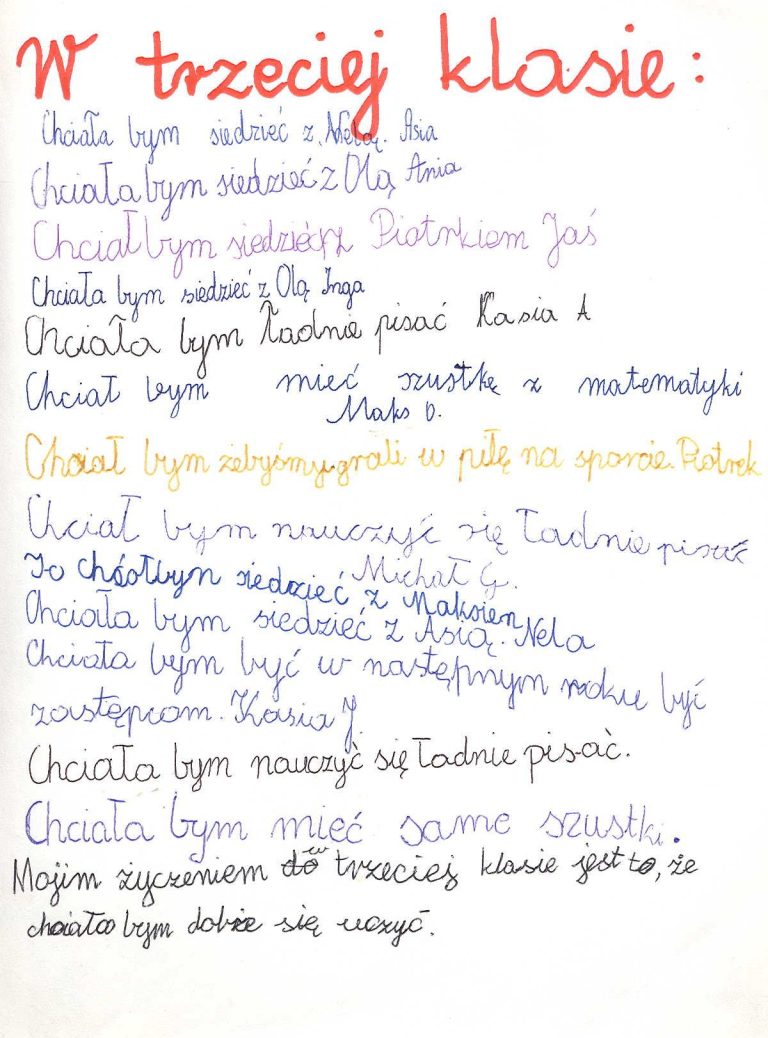 W trzeciej klasie:
Chciała bym siedzieć z Nelą. Asia
Chciała bym siedzieć z Olą Ania
Chciał bym siedzieć z Piotrkiem Jaś
Chciała bym siedzieć z Olą Inga
Chciała bym ładnie pisać Kasia A
Chciał bym mieć szustkę z matematyki
Maks D.
Chciał bym żebyśmy grali w piłę na sporcie. Piotrek
Chciał bym nauczyć się ładnie pisać
Michał G.
Jo siedzieć z Maksien
Chciała bym siedzieć z Asią. Nela
Chciała bym być w następnym roku być
zastępcom. Kasia J.
Chciała bym nauczyć się ładnie pisać.
Chciała bym mieć same szustki.
Mojim życzeniem w trzeciej klasie jest to, że
chciała bym dobże się uczyć.